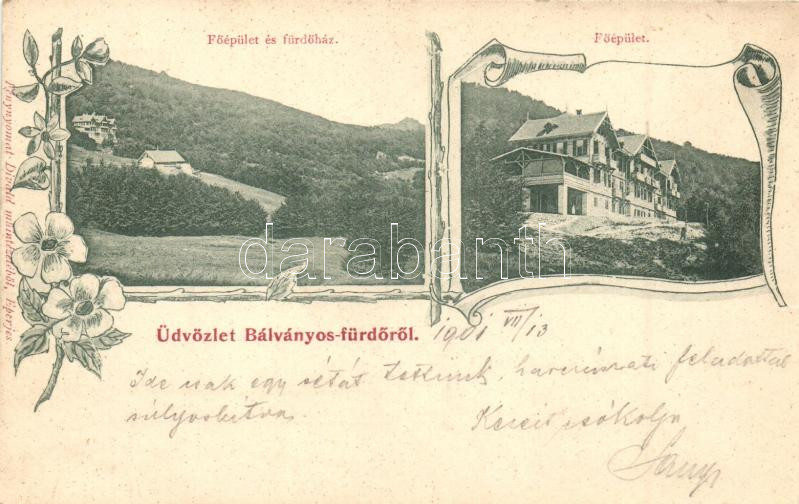 Főépület és fürdőház.
Főépület.
Fénynyomat Divald műintézetéből, Eperjes.
darabanth.com
Üdvözlet Bálványos-fürdőről.
1901 VII/13
Ide csak egy sétát tettünk,
súlyosbitva.
Kezeit csókolja